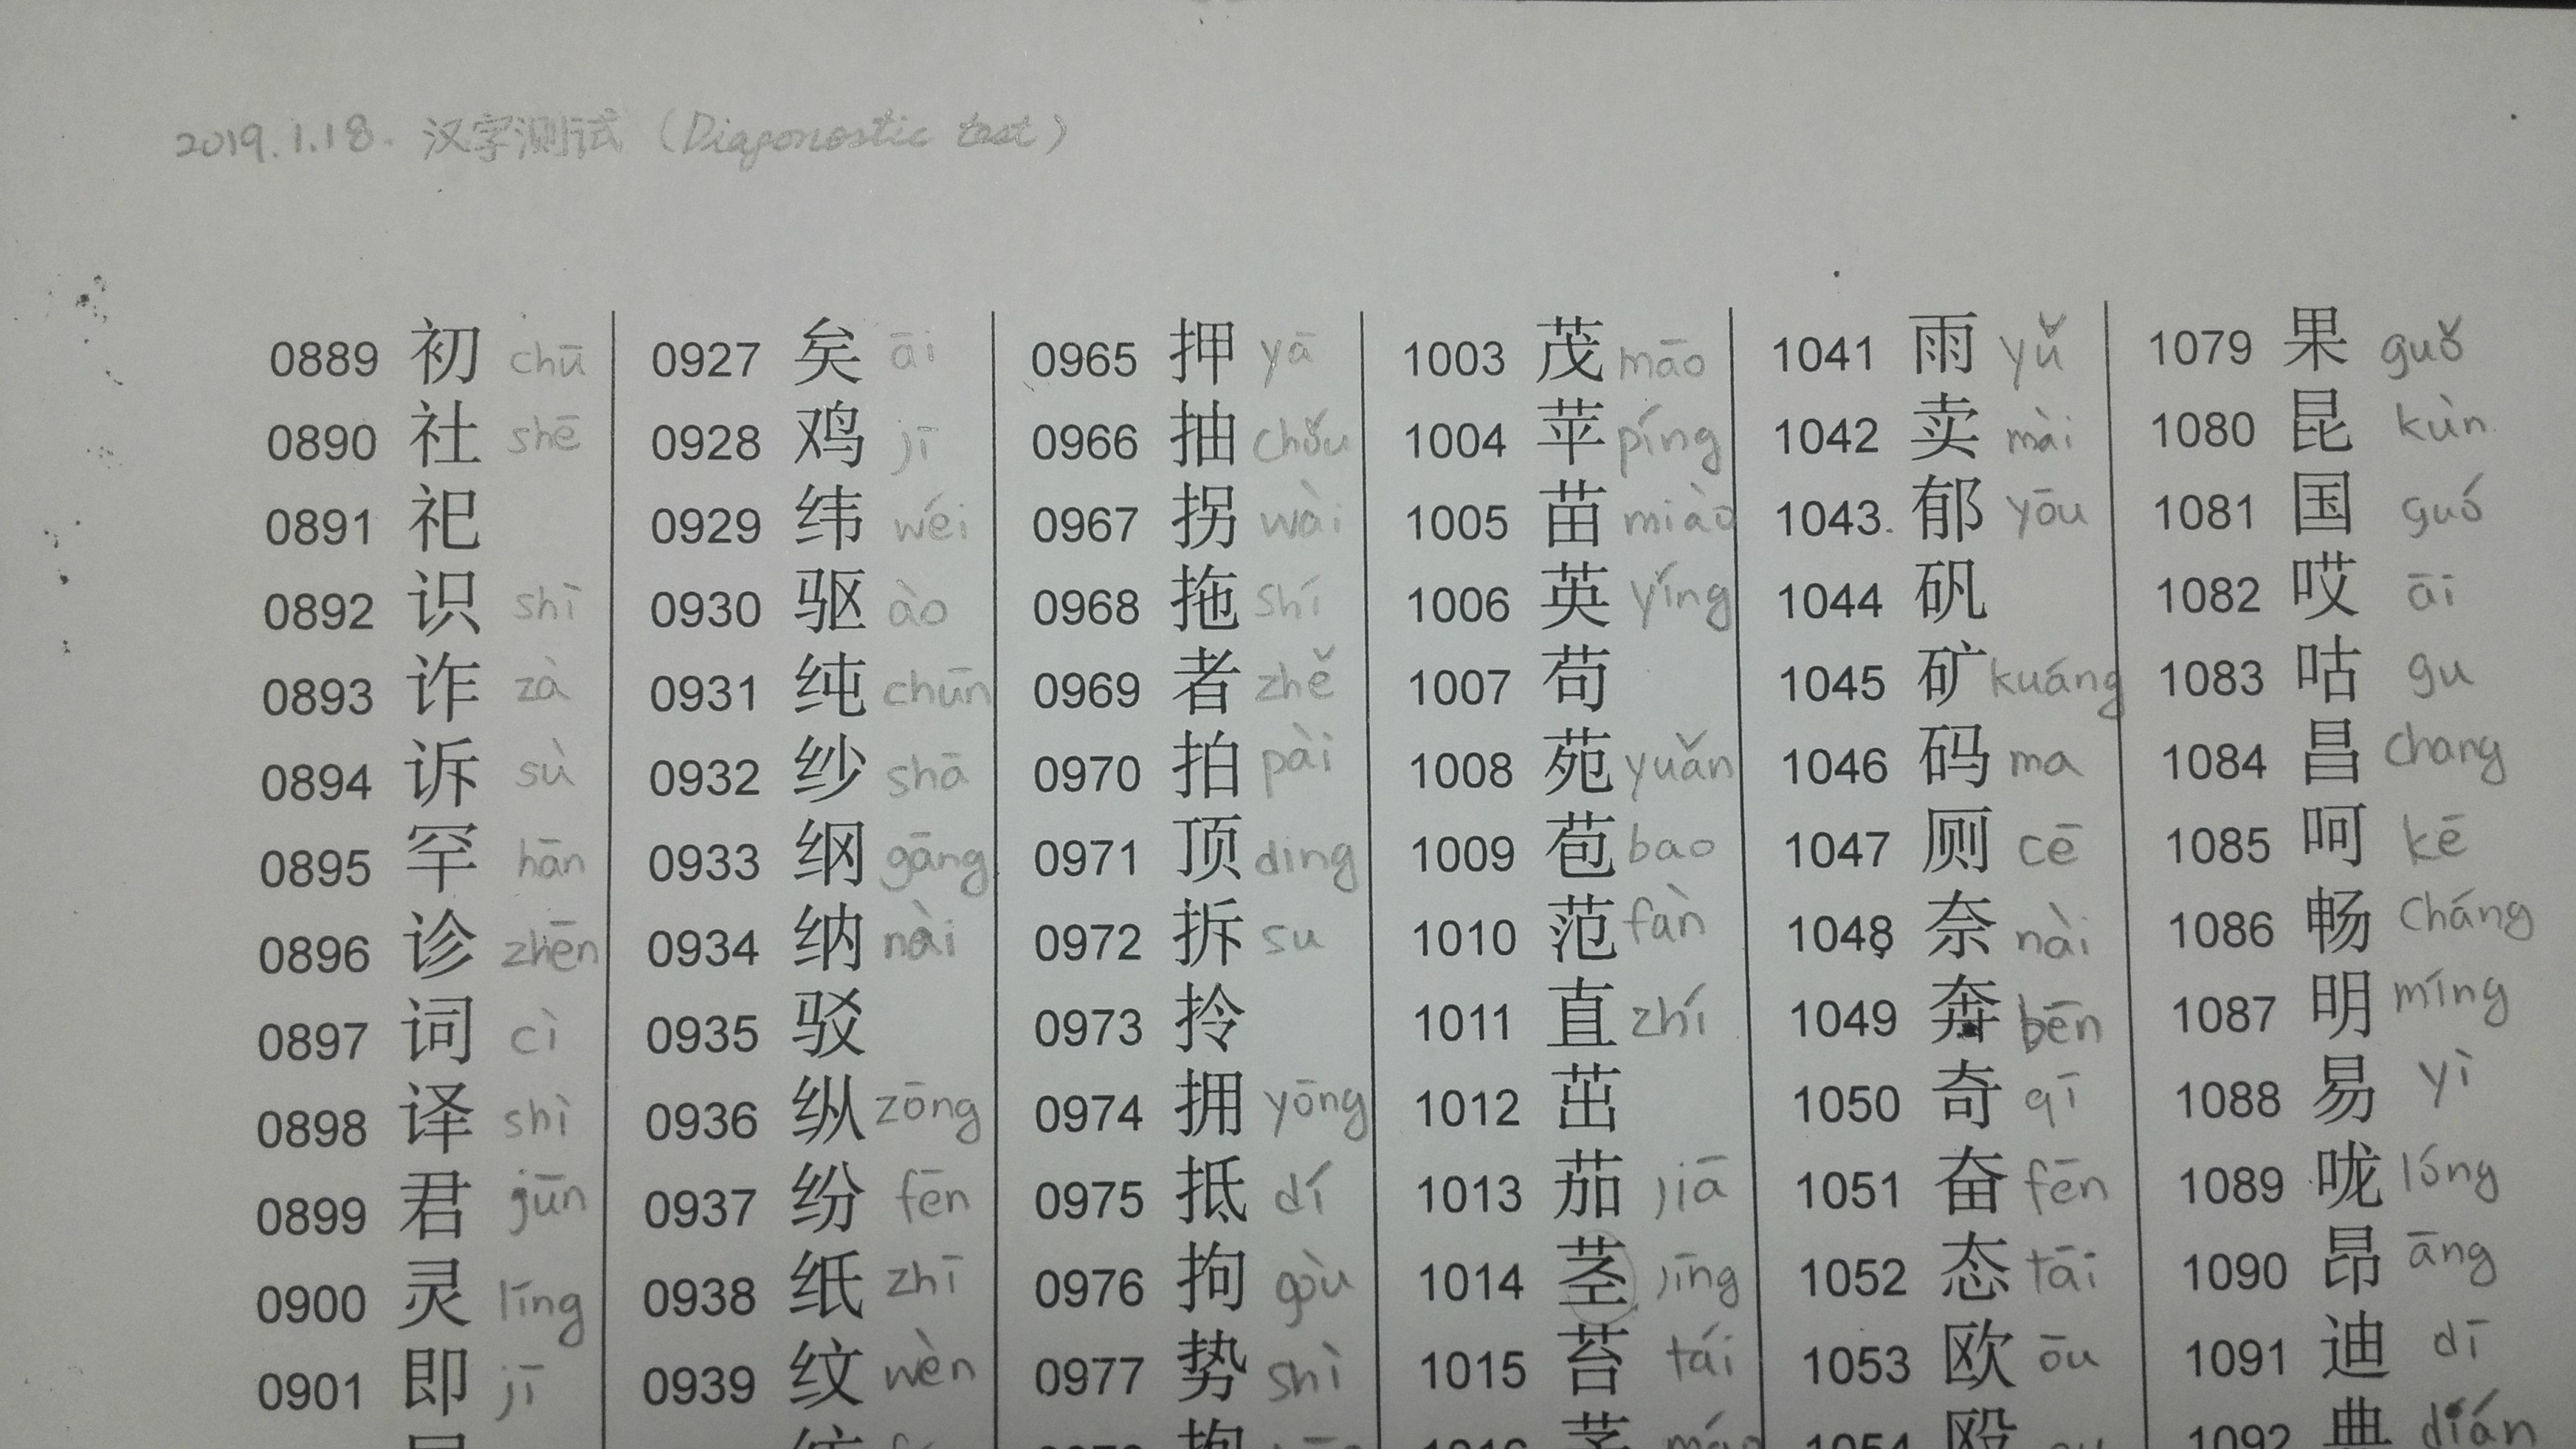 2019.1.18. 汉字测试 (Diagonostic test)
0889 初 chū 0927 矣 āi 0965 押 yā 1003 茂 māo 1041 雨 yǔ 1079 果 guǒ
0890 社 shē 0928 鸡 jī 0966 抽 chǒu 1004 苹 píng 1042 卖 mài 1080 昆 kùn
0891 祀 0929 纬 wéi 0967 拐 wài 1005 苗 miào 1043 郁 yōu 1081 国 guó
0892 识 shī 0930 驱 ào 0968 拖 shí 1006 英 yíng 1044 矾 1082 哎 āi
0893 诈 zà 0931 纯 chūn 0969 者 zhě 1007 苟 1045 矿 kuáng 1083 咕 gu
0894 诉 sù 0932 纱 shā 0970 拍 pài 1008 苑 yuǎn 1046 码 ma 1084 昌 chang
0895 罕 hān 0933 纲 gāng 0971 顶 ding 1009 苞 bao 1047 厕 cē 1085 呵 kē
0896 诊 zhēn 0934 纳 nài 0972 拆 su 1010 范 fàn 1048 奈 nài 1086 畅 cháng
0897 词 cì 0935 驳 0973 拎 1011 直 zhí 1049 奔 bēn 1087 明 míng
0898 译 shì 0936 纵 zōng 0974 拥 yōng 1012 茁 1050 奇 qī 1088 易 yì
0899 君 jūn 0937 纷 fēn 0975 抵 dí 1013 茄 jiā 1051 奋 fēn 1089 咙 lóng
0900 灵 líng 0938 纸 zhī 0976 拘 gòu 1014 茎 jīng 1052 态 tāi 1090 昂 āng
0901 即 jī 0939 纹 wèn 0977 势 shì 1015 苔 tái 1053 欧 ōu 1091 迪 dī
抱 1016 茅 1054 殴 1092 典 dián